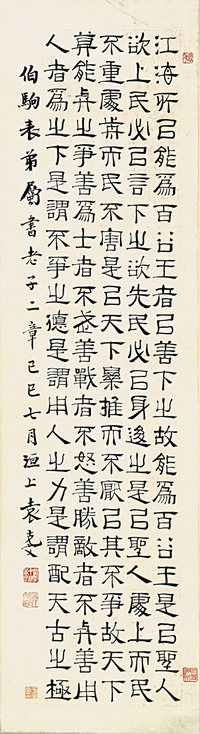 江海所㠯能爲百谷王者㠯善下之故能爲百谷王是㠯聖人
欲上民必㠯言下之欲先民必㠯身後之是㠯聖人處上而民
不重處歬而民不害是㠯天下樂推而不厭㠯其不爭故天下
莫能与之爭善爲士者不武善戰者不怒善勝敵者不与善用
人者爲之下是謂不爭之德是謂用人之力是謂配天古之極
伯駒表弟屬書老子二章己巳七月洹上袁克文